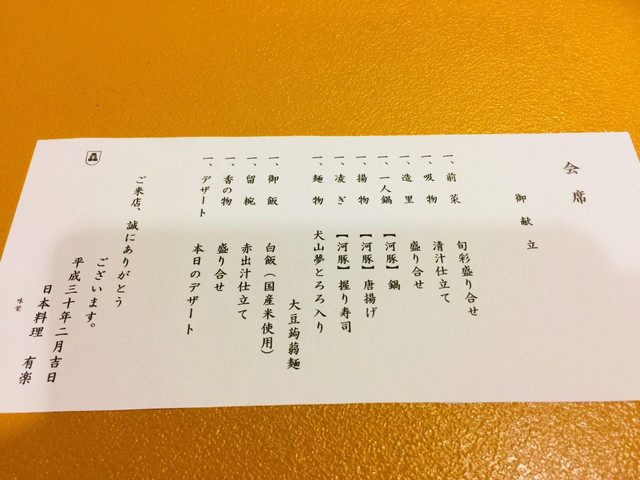 会席
御献立
一、前菜 旬彩盛り合せ
一、吸物 清汁仕立て
一、造里 盛り合せ
一、一人鍋 【河豚】鍋
一、揚物 【河豚】唐揚げ
一、凌ぎ 【河豚】握り寿司
一、麺物 犬山夢とろろ入り
大豆蒟蒻麺
一、御飯 白飯（国産米使用）
一、留椀 赤出汁仕立て
一、香の物 盛り合せ
一、デザート 本日のデザート
ご来店、誠にありがとう
ございます。
平成三十年二月吉日
日本料理 有楽